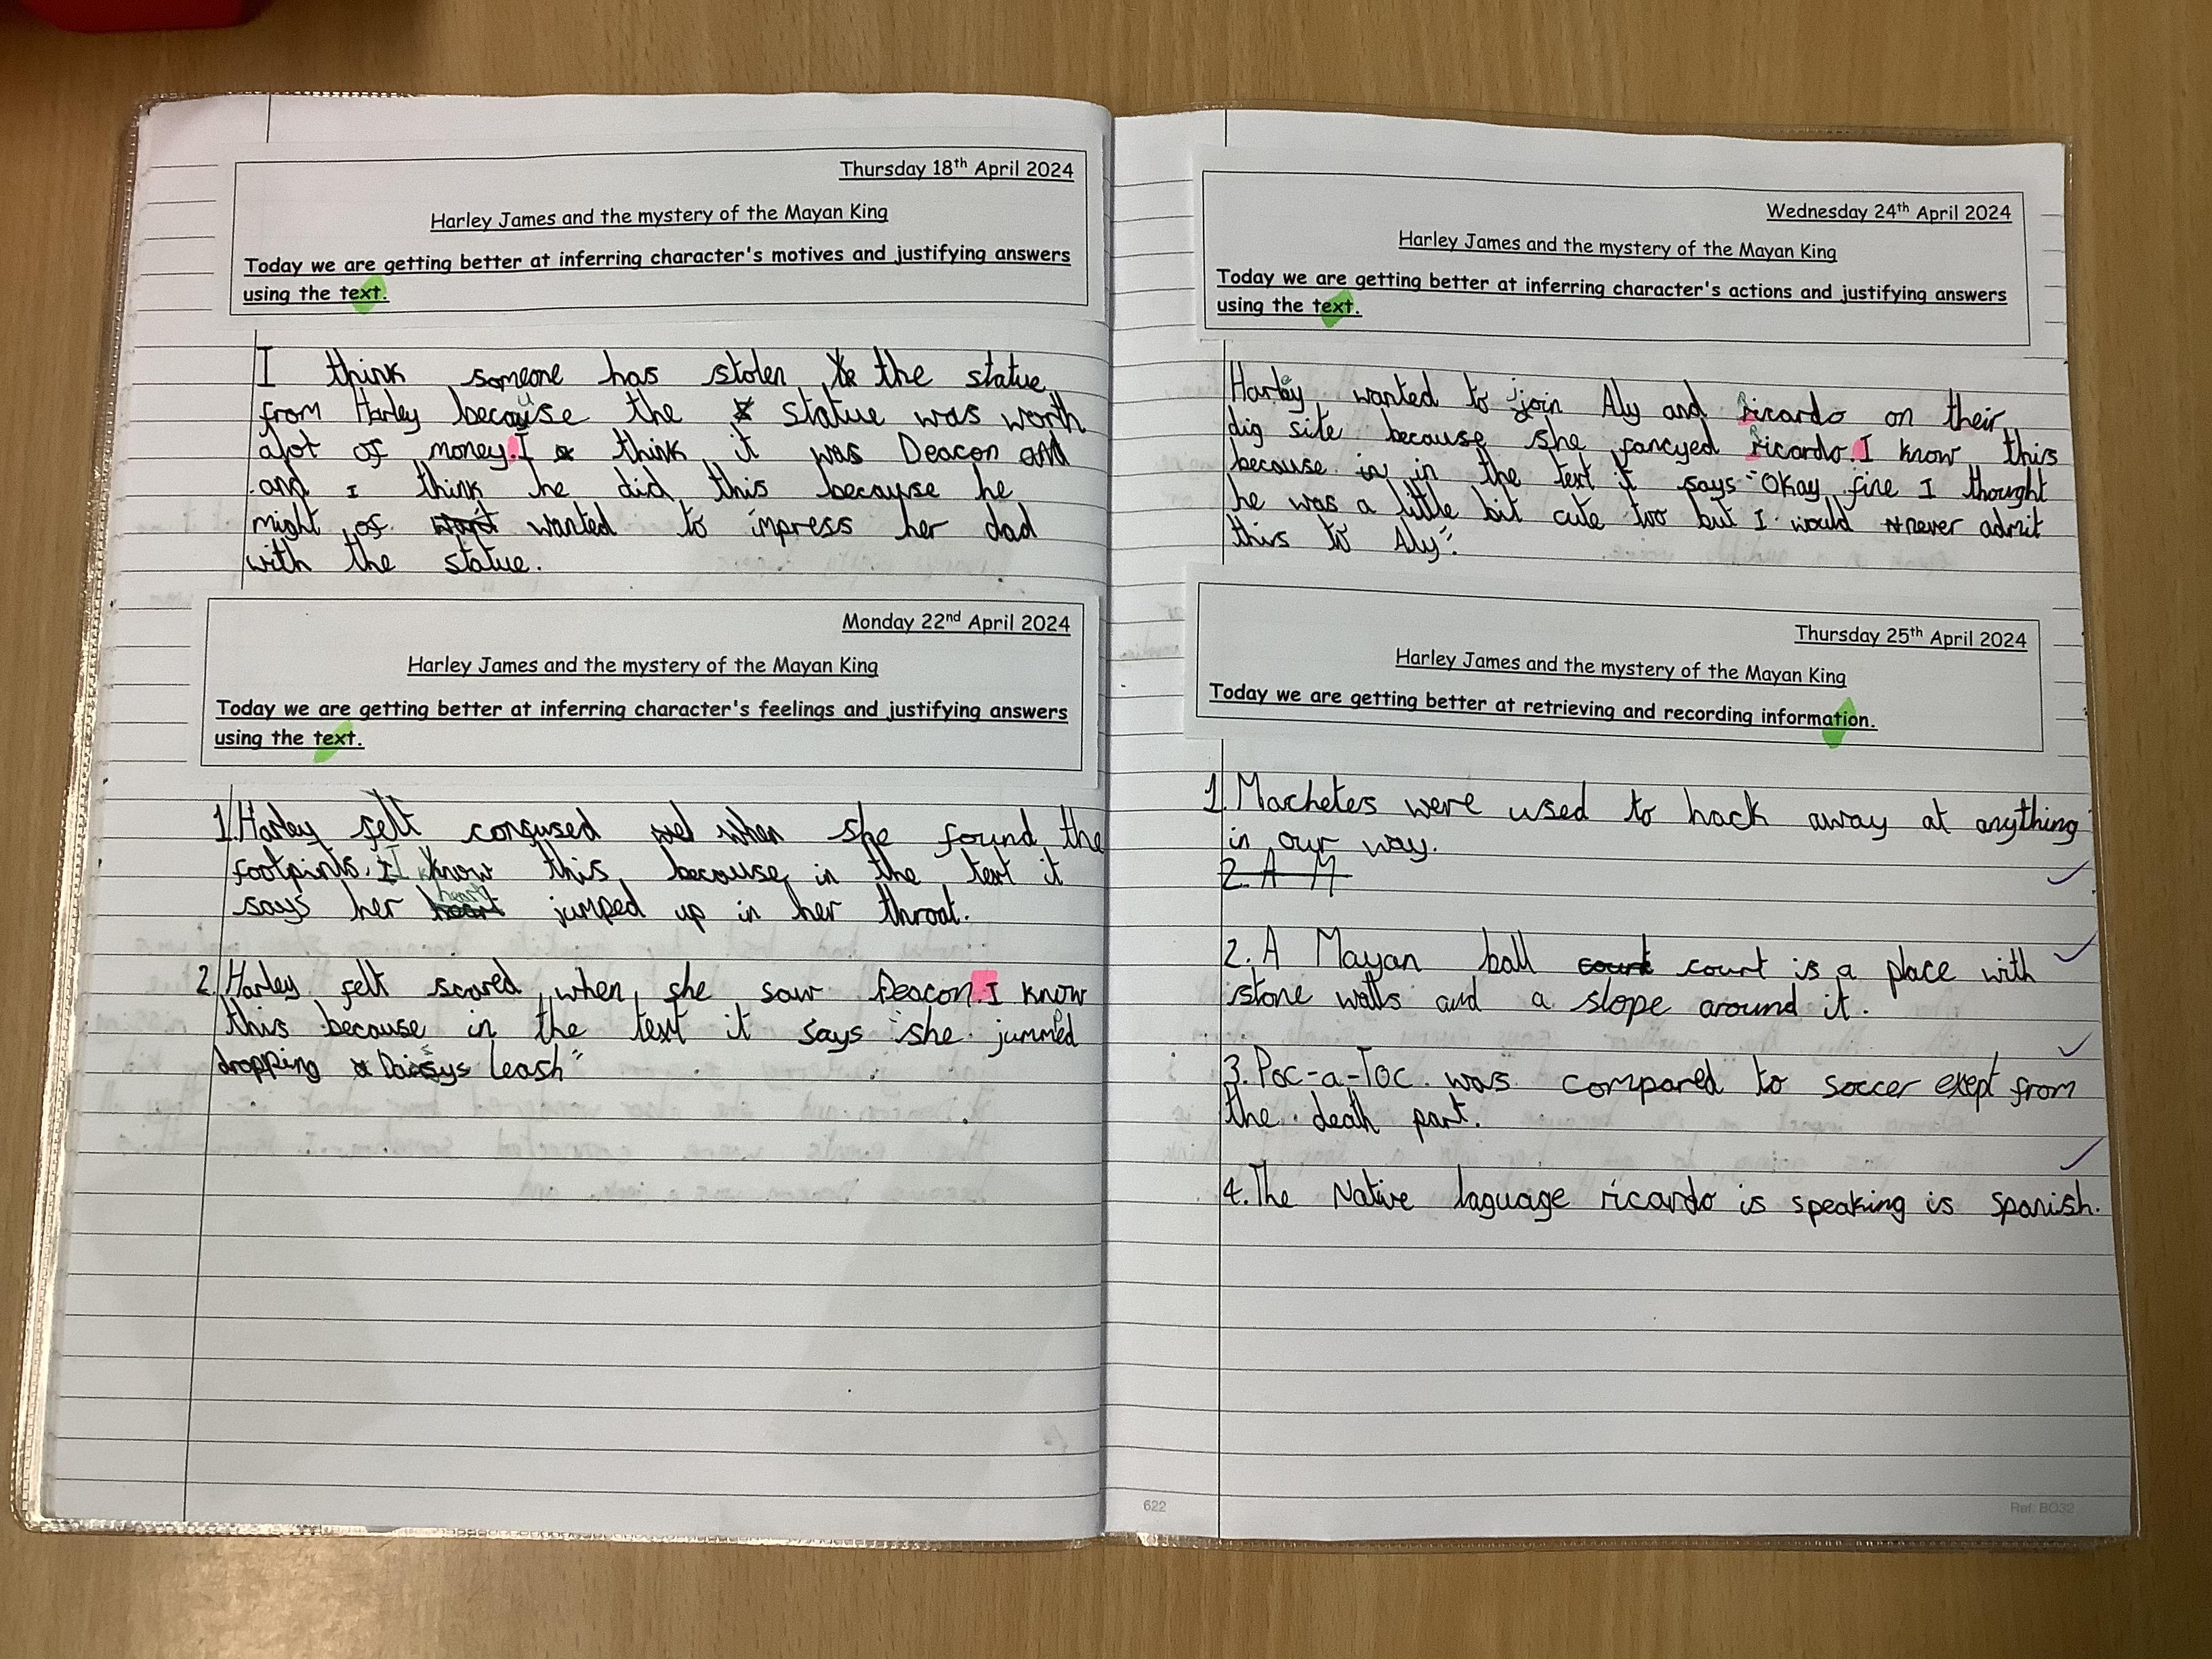 Thursday 18th April 2024
Harley James and the mystery of the Mayan King
Today we are getting better at inferring character's motives and justifying answers
using the text.
I think someone has stolen the statue
from Harley because the statue was worth
alot of money. I think it was Deacon and
and I think he did this because he
might of wanted to impress her dad
with the statue.
Monday 22nd April 2024
Harley James and the mystery of the Mayan King
Today we are getting better at inferring character's feelings and justifying answers
using the text.
1. Harley felt confused when she found the
footpints. I know this because in the text it
says her heart jumped up in her throat.
2. Harley felt scared when she saw Deacon. I know
this because in the text it says "she jumped
dropping Daisys leash"
Wednesday 24th April 2024
Harley James and the mystery of the Mayan King
Today we are getting better at inferring character's actions and justifying answers
using the text.
Harley wanted to join Aly and Ricardo on their
dig site because she fancyed Ricardo. I know this
because in the text it says "Okay fine I thought
he was a little bit cute too but I would never admit
this to Aly".
Thursday 25th April 2024
Harley James and the mystery of the Mayan King
Today we are getting better at retrieving and recording information.
1. Machetes were used to hack away at anything
in our way.
2. A M
2. A Mayan ball court court is a place with
stone walls and a slope around it.
3. Poc-a-Toc was compared to soccer exept from
the death part.
4. The Native laguage ricardo is speaking is spanish.
622
Ref: BO32